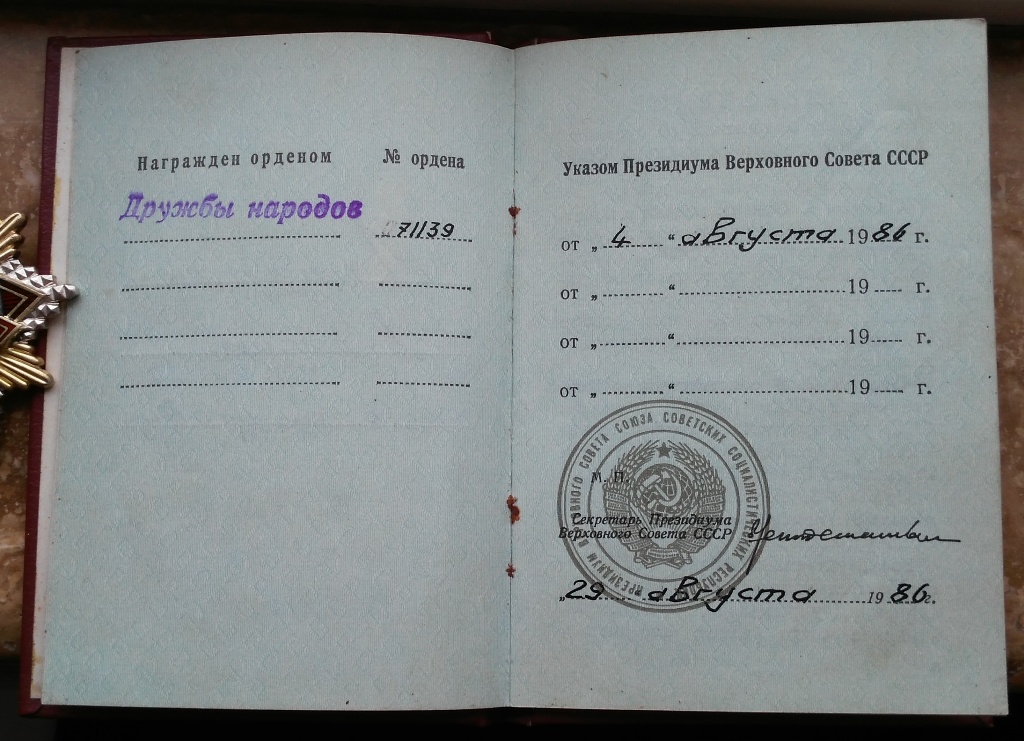 Награжден орденом № ордена
Дружбы народов 71139
Указом Президиума Верховного Совета СССР
от „ 4 “ августа 1986 г.
от „ “ 19 г.
от „ “ 19 г.
от „ “ 19 г.
ПРЕЗИДИУМ ВЕРХОВНОГО СОВЕТА СОЮЗА СОВЕТСКИХ СОЦИАЛИСТИЧЕСКИХ РЕСПУБЛИК
М. П.
Секретарь Президиума
Верховного Совета СССР
„29 августа 1986г.